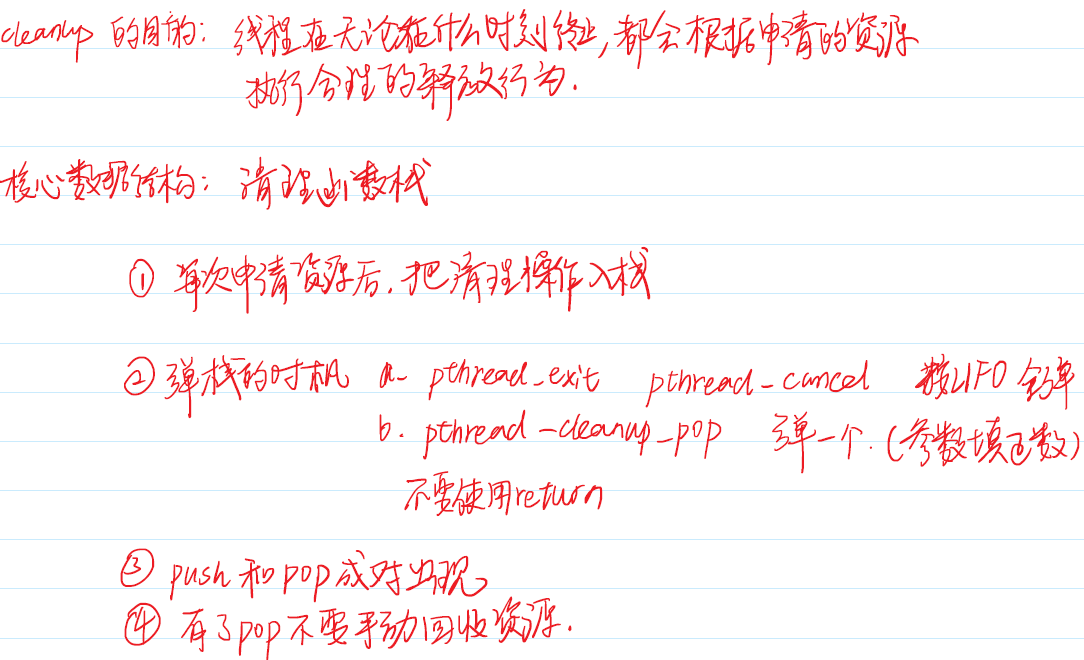 cleanup 的目的: 线程在无论在什么时刻终止,都会根据申请的资源
执行合理的释放行为.
核心数据结构: 清理函数栈
① 每次申请资源后,把清理操作入栈
② 弹栈的时机 a- pthread_exit pthread_cancel 按LIFO 全弹
b. pthread_cleanup_pop 弹一个.(参数填正数)
不要使用return
③ push和pop成对出现
④ 有了pop不要手动回收资源.